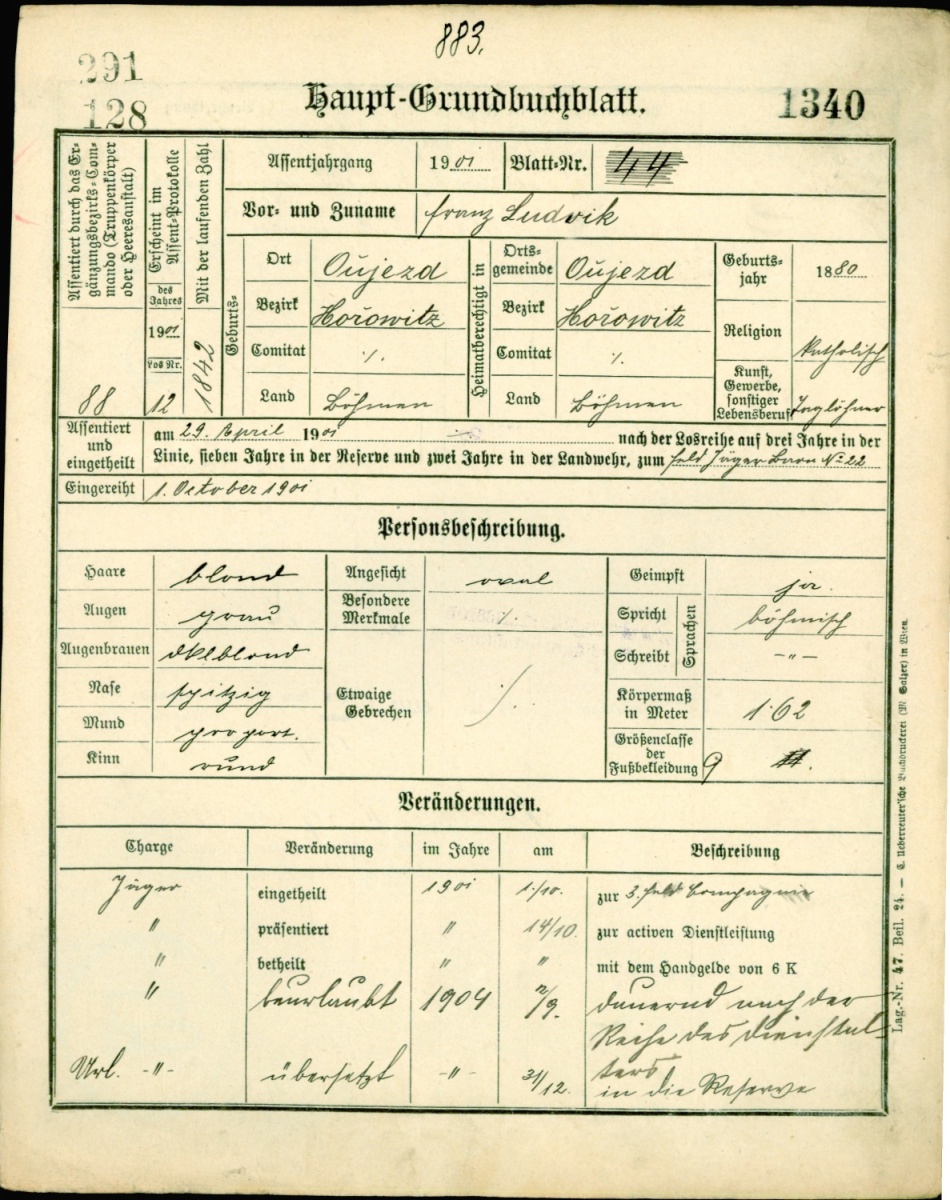 883.
291
128
Haupt-Grundbuchblatt.
1340
Assentiert durch das Er-
gänzungsbezirks-Com-
mando (Truppenkörper
oder Heeresanstalt)
88
Erscheint im
Assent-Protokolle
des
Jahres
1901
Los Nr.
12
Mit der laufenden Zahl
1842
Assentjahrgang
1901
Blatt-Nr.
44
Vor- und Zuname
Franz Ludvik
Geburts-
Ort
Oujezd
Bezirk
Hořowitz
Comitat
./.
Land
Böhmen
Heimatberechtigt in
Orts-
gemeinde
Oujezd
Bezirk
Hořowitz
Comitat
./.
Land
Böhmen
Geburts-
jahr
1880
Religion
katholisch
Kunst,
Gewerbe,
sonstiger
Lebensberuf
Taglöhner
Assentiert
und
eingetheilt
am 29. April 1901 nach der Losreihe auf drei Jahre in der
Linie, sieben Jahre in der Reserve und zwei Jahre in der Landwehr, zum Feld Jäger Baon № 22
Eingereiht
1. October 1901
Personsbeschreibung.
Haare
blond
Augen
grau
Augenbrauen
dklblond
Nase
spitzig
Mund
proport.
Kinn
rund
Angesicht
oval
Besondere
Merkmale
./.
Etwaige
Gebrechen
./.
Geimpft
ja.
Spricht
Sprachen
böhmisch
Schreibt
-"-
Körpermaß
in Meter
1·62
Größenclasse
der
Fußbekleidung
9
Veränderungen.
Charge Veränderung im Jahre am Beschreibung
Jäger eingetheilt 1901 1./10. zur 3. Feld Compagnie
" präsentiert " 14/10. zur activen Dienstleistung
" betheilt " " mit dem Handgelde von 6 K
" beurlaubt 1904 /9. dauernd nach der
Reihe des Dienstal-
ters
Url. -"- übersetzt -"- 31/12. in die Reserve
Lag.-Nr. 47. Beil. 24. — C. Ueberreuter'sche Buchdruckerei (M. Salzer) in Wien.